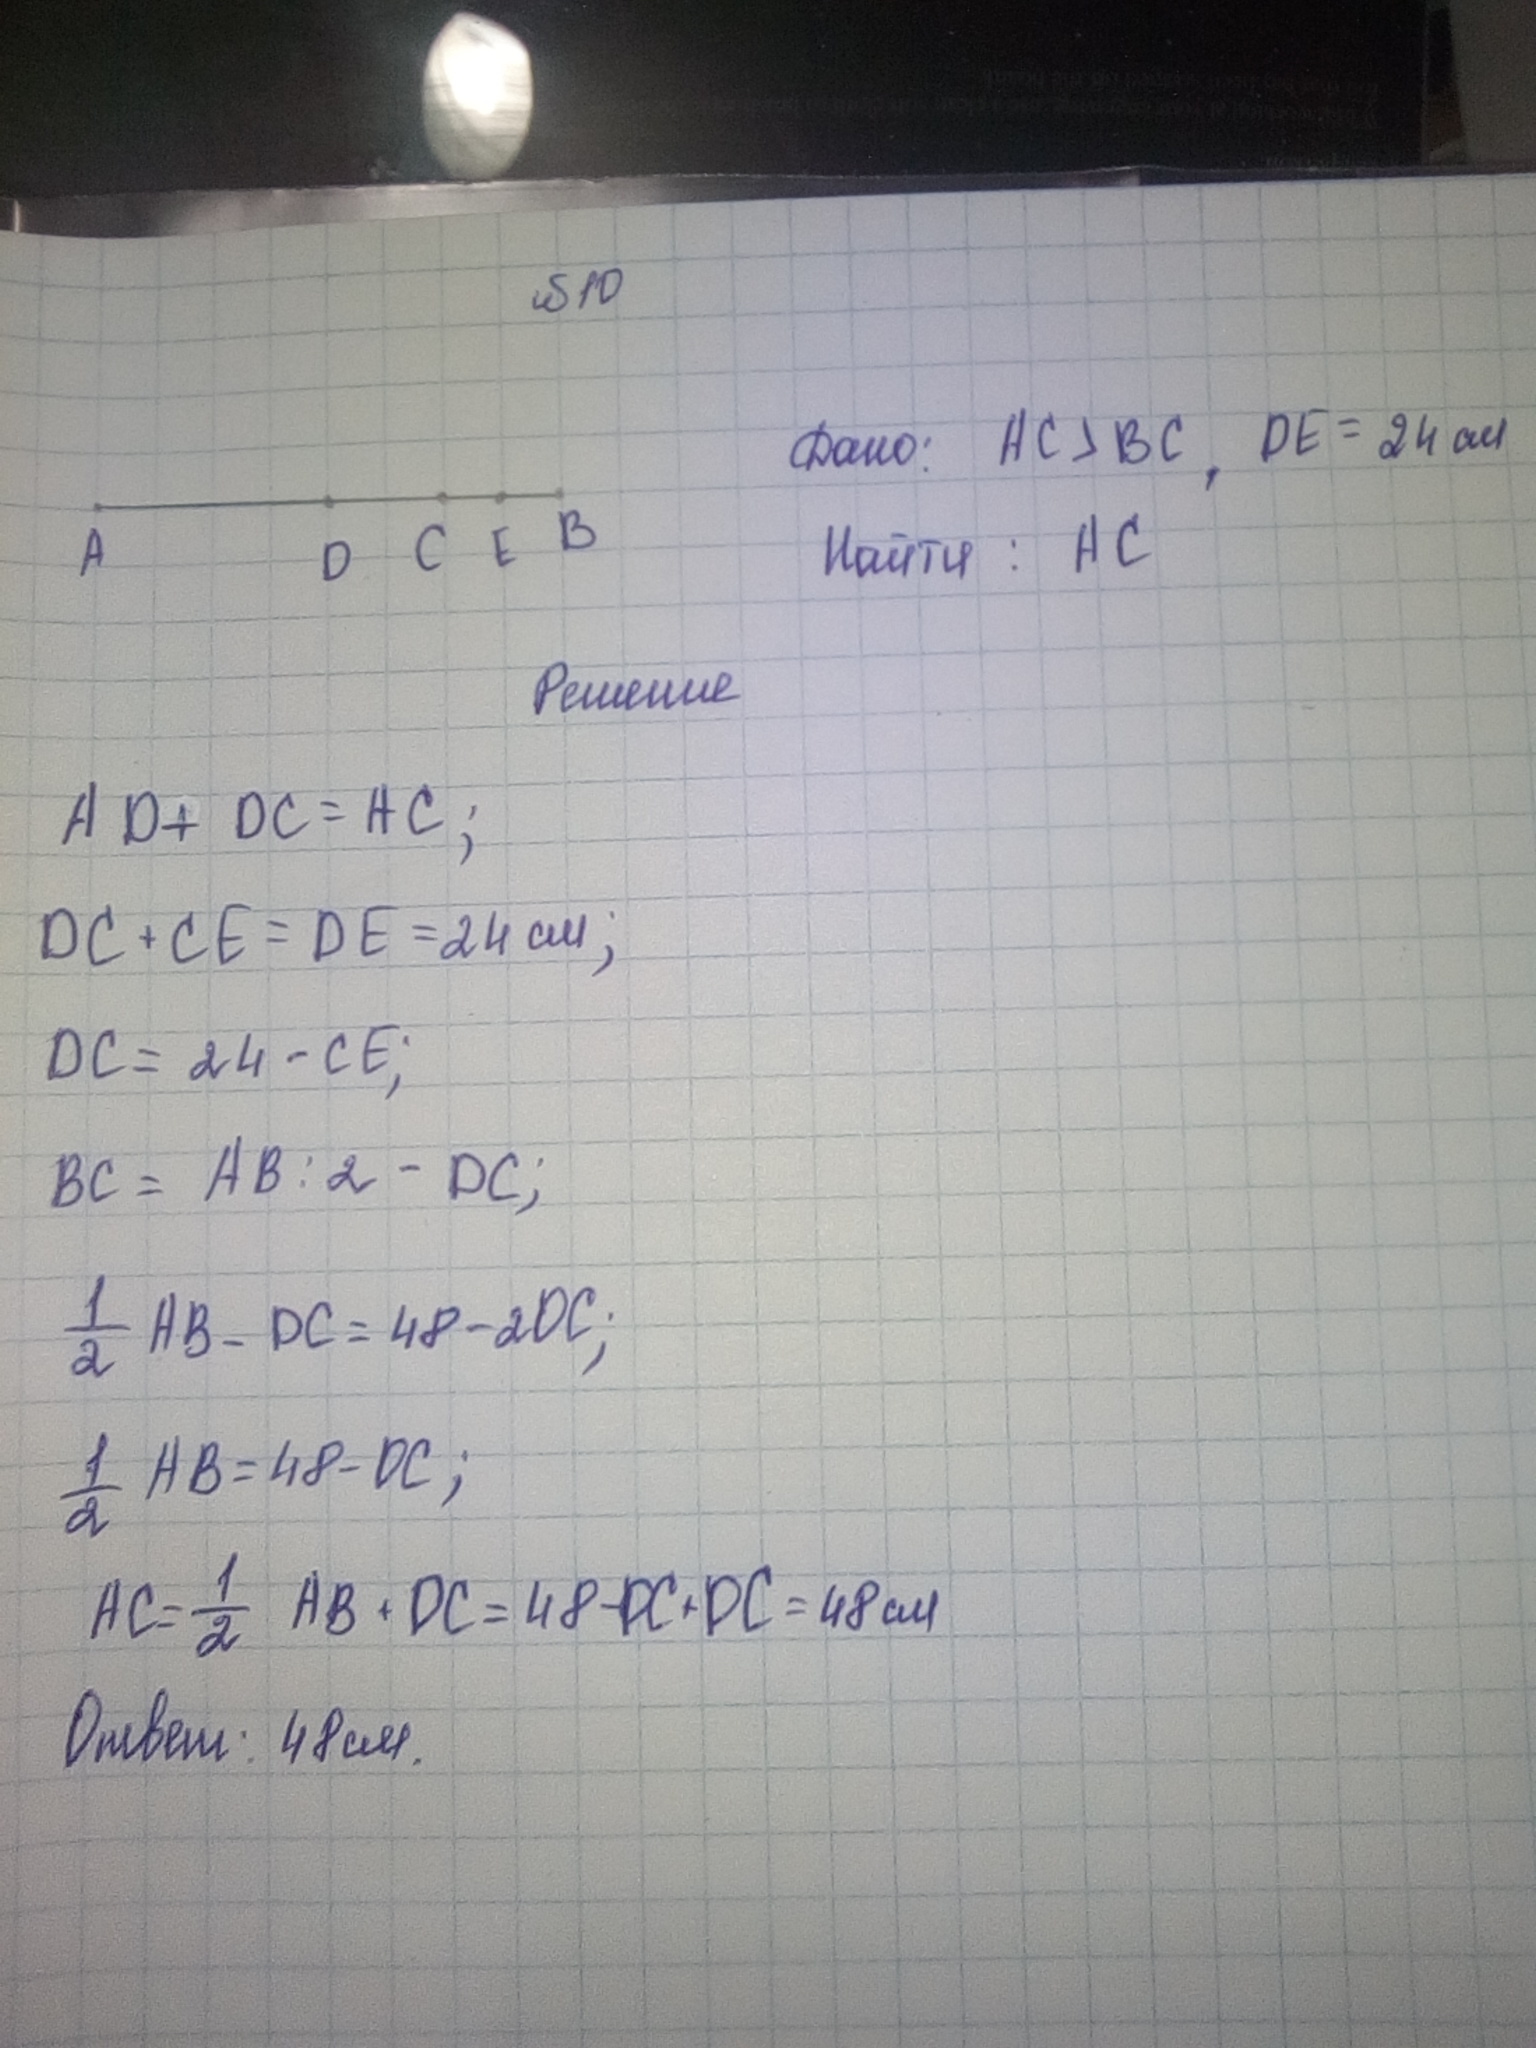 №10
Дано: AC > BC, DE = 24 см
A D C E B
Найти: AC
Решение
AD + DC = AC;
DC + CE = DE = 24 см;
DC = 24 - CE;
BC = AB : 2 - DC;
1/2 AB - DC = 48 - 2DC;
1/2 AB = 48 - DC;
AC = 1/2 AB + DC = 48 - DC + DC = 48 см
Ответ: 48 см.